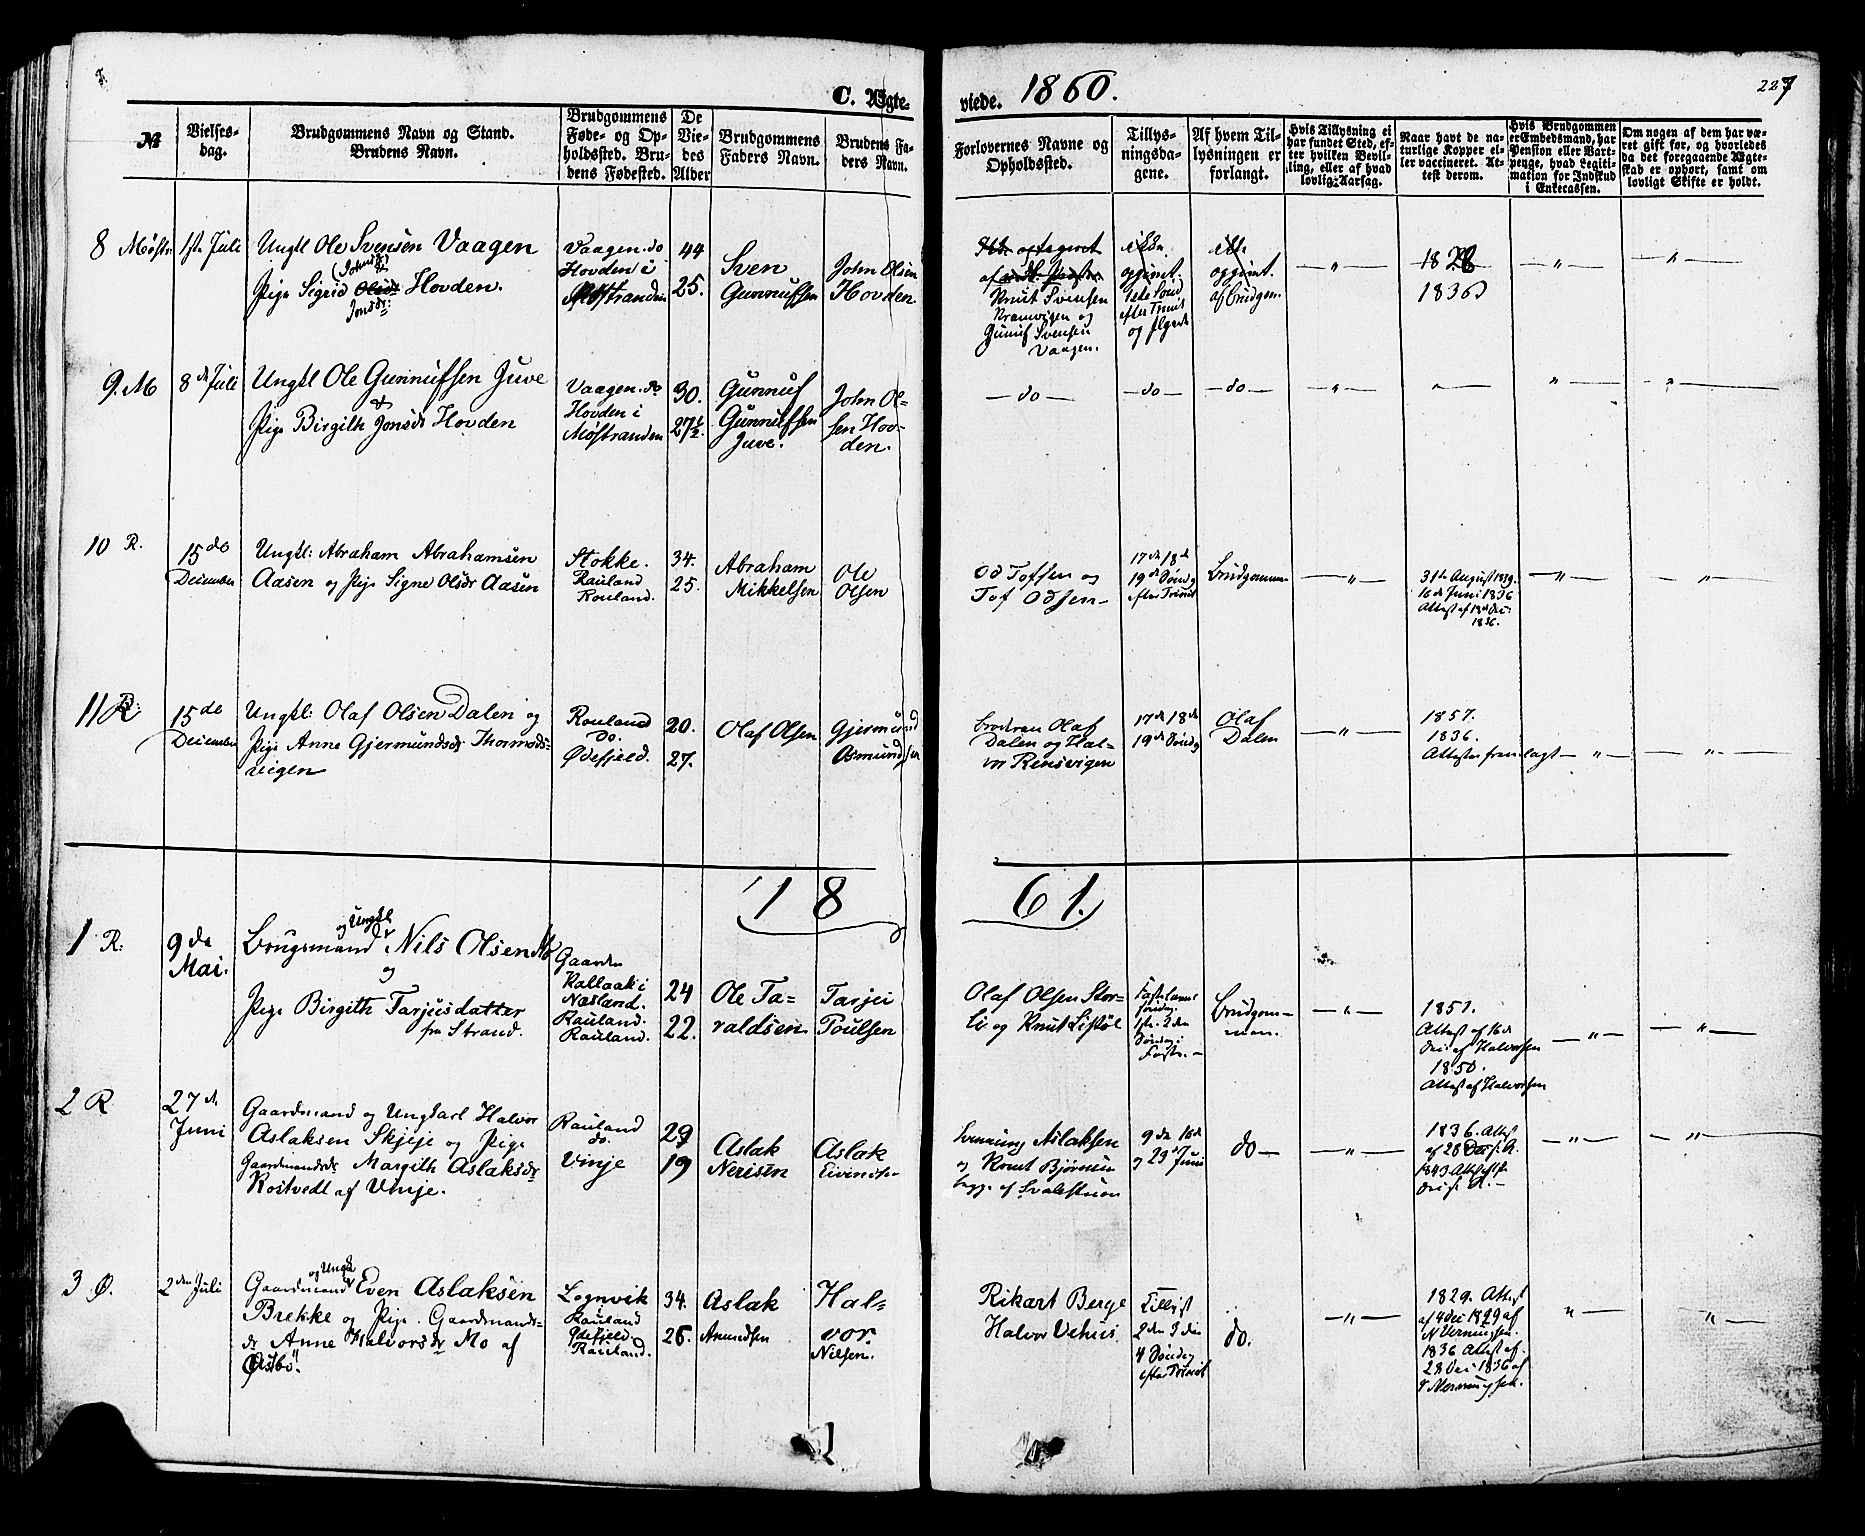 C. Ægte-
viede. 1860.
227
№
Vielses-
dag.
Brudgommens Navn og Stand.
Brudens Navn.
Brudgommens
Føde- og Op-
holdssted. Bru-
dens Fødested.
De
Vie-
des
Alder
Brudgommens
Faders Navn.
Brudens Fa-
ders Navn.
Forlovernes Navne og
Opholdssted.
Tillys-
ningsda-
gene.
Af hvem Til-
lysningen er
forlangt.
Hvis Tillysning ei
har fundet Sted, ef-
ter hvilken Bevil-
ling, eller af hvad
lovlig Aarsag.
Naar havt de na-
turlige Kopper el-
ler vaccineret. At-
test derom.
Hvis Brudgommen
er Embedsmand, har
Pension eller Vart-
penge, hvad Legiti-
mation for Indskud
i Enkecassen.
Om nogen af dem har væ-
ret gift før, og hvorledes
da det foregaaende Ægte-
skab er ophørt, samt om
lovligt Skifte er holdt.
8 Møstr.
1ste Juli
Ungkl Ole Svensen Vaagen
Pige Sigrid Olsdr Hovden.
Jonsdr
Vaagen. do
Hovden i
Møstranden
44
25.
Sven
Gunnufsen
John Olsen
Hovden
Knut Svensen
Kramvigen og
Gunuf Svensen
Vaagen.
ikke
opgivet.
efter Trinit
ikke
opgivet.
af Brudgom.
— " —
1828
1836
— " —
— " —
9. M
8de Juli
Ungkl Ole Gunnufsen Juve
&
Pige Birgith Jonsdr Hovden
Vaagen. do
Hovden i
Møstranden
30.
27½.
Gunnuf
Gunnufsen
Juve.
John Ol-
sen Hov-
den.
— do —
— do —
— do —
— " —
— " —
— " —
— " —
10 R.
15de
December
Ungkl: Abraham Abrahamsen
Aasen og Pige Signe Olsdr Aasen
Stokke.
Rauland
Rauland.
34.
25.
Abraham
Mikkelsen
Ole
Olsen
Od Tofsen og
Tof Odsen —
17de 18de
19de Søndg
efter Trinit
Brudgommen
— " —
31te August 1829.
16de Juni 1836
Attest af 18de Dec:
1836.
— " —
— " —
11 R.
15de
December
Ungkl: Olaf Olsen Dalen og
Pige Anne Gjermundsdr Thormods-
veigen
Rauland
do.
Ødefjeld.
20.
27.
Olaf Olsen
Gjermund
Asmundsen
Brødren Olaf
Dalen og Hal-
vor Rensvigen
17de 18de
19de Søndg
Olaf
Dalen
— " —
1857.
1836.
Attester fremlagt
— " —
— " —
18
61.
1 R:
9de
Mai.
og Ungkl
Brugsmand Nils Olsen
og
Pige Birgith Tarjeisdatter
fra Strand.
Gaarden
Kallaak i
Næsland.
Rauland.
Rauland.
24
22.
Ole Ta-
raldsen
Tarjei
Poulsen
Olaf Olsen Stor-
li og Knut Listøl
Fastelavns
Søndag.
Søndag i
Faste. —
Brudgom-
men.
— " —
1851.
Attest af 16de
Dec af Halvorsen
1850.
Attest af Halvorsen
— " —
— " —
2 R
27de
Juni
Gaardmand og Ungkarl Halvor
Aslaksen Skjeje og Pige
Gaardmandsdr Margith Aslaksdr
Rostvedt af Vinje.
Rauland
do.
Vinje
29
19
Aslak
Nerisen
Aslak
Eivends-
Svenning Aslaksen
og Knut Bjørnsen
begge af
9de 16de
og 23de Juni
do —
— " —
1836. Attest
af 28 Dec
1843 Attest
— " —
— " —
3 Ø.
2den Juli
og Ungk
Gaardmand Even Aslaksen
Brekke og Pige. Gaardmands-
dr Anne Halvorsdr Mo af
Øsbø
Lognvik
Rauland
Ødefjeld.
Rauland.
34.
26.
Aslak
Amundsen
Hal-
vor.
Nilsen.
Rikart Berge
Halvor Vehus.
Tillyst
2den 3die
4 Søndag
efter Trinit
do.
— " —
1829. Attest
af 4 Dec 1829 af
N Verningsen.
1836 Attest af.
28 Dec 1836 af
— " —
— " —